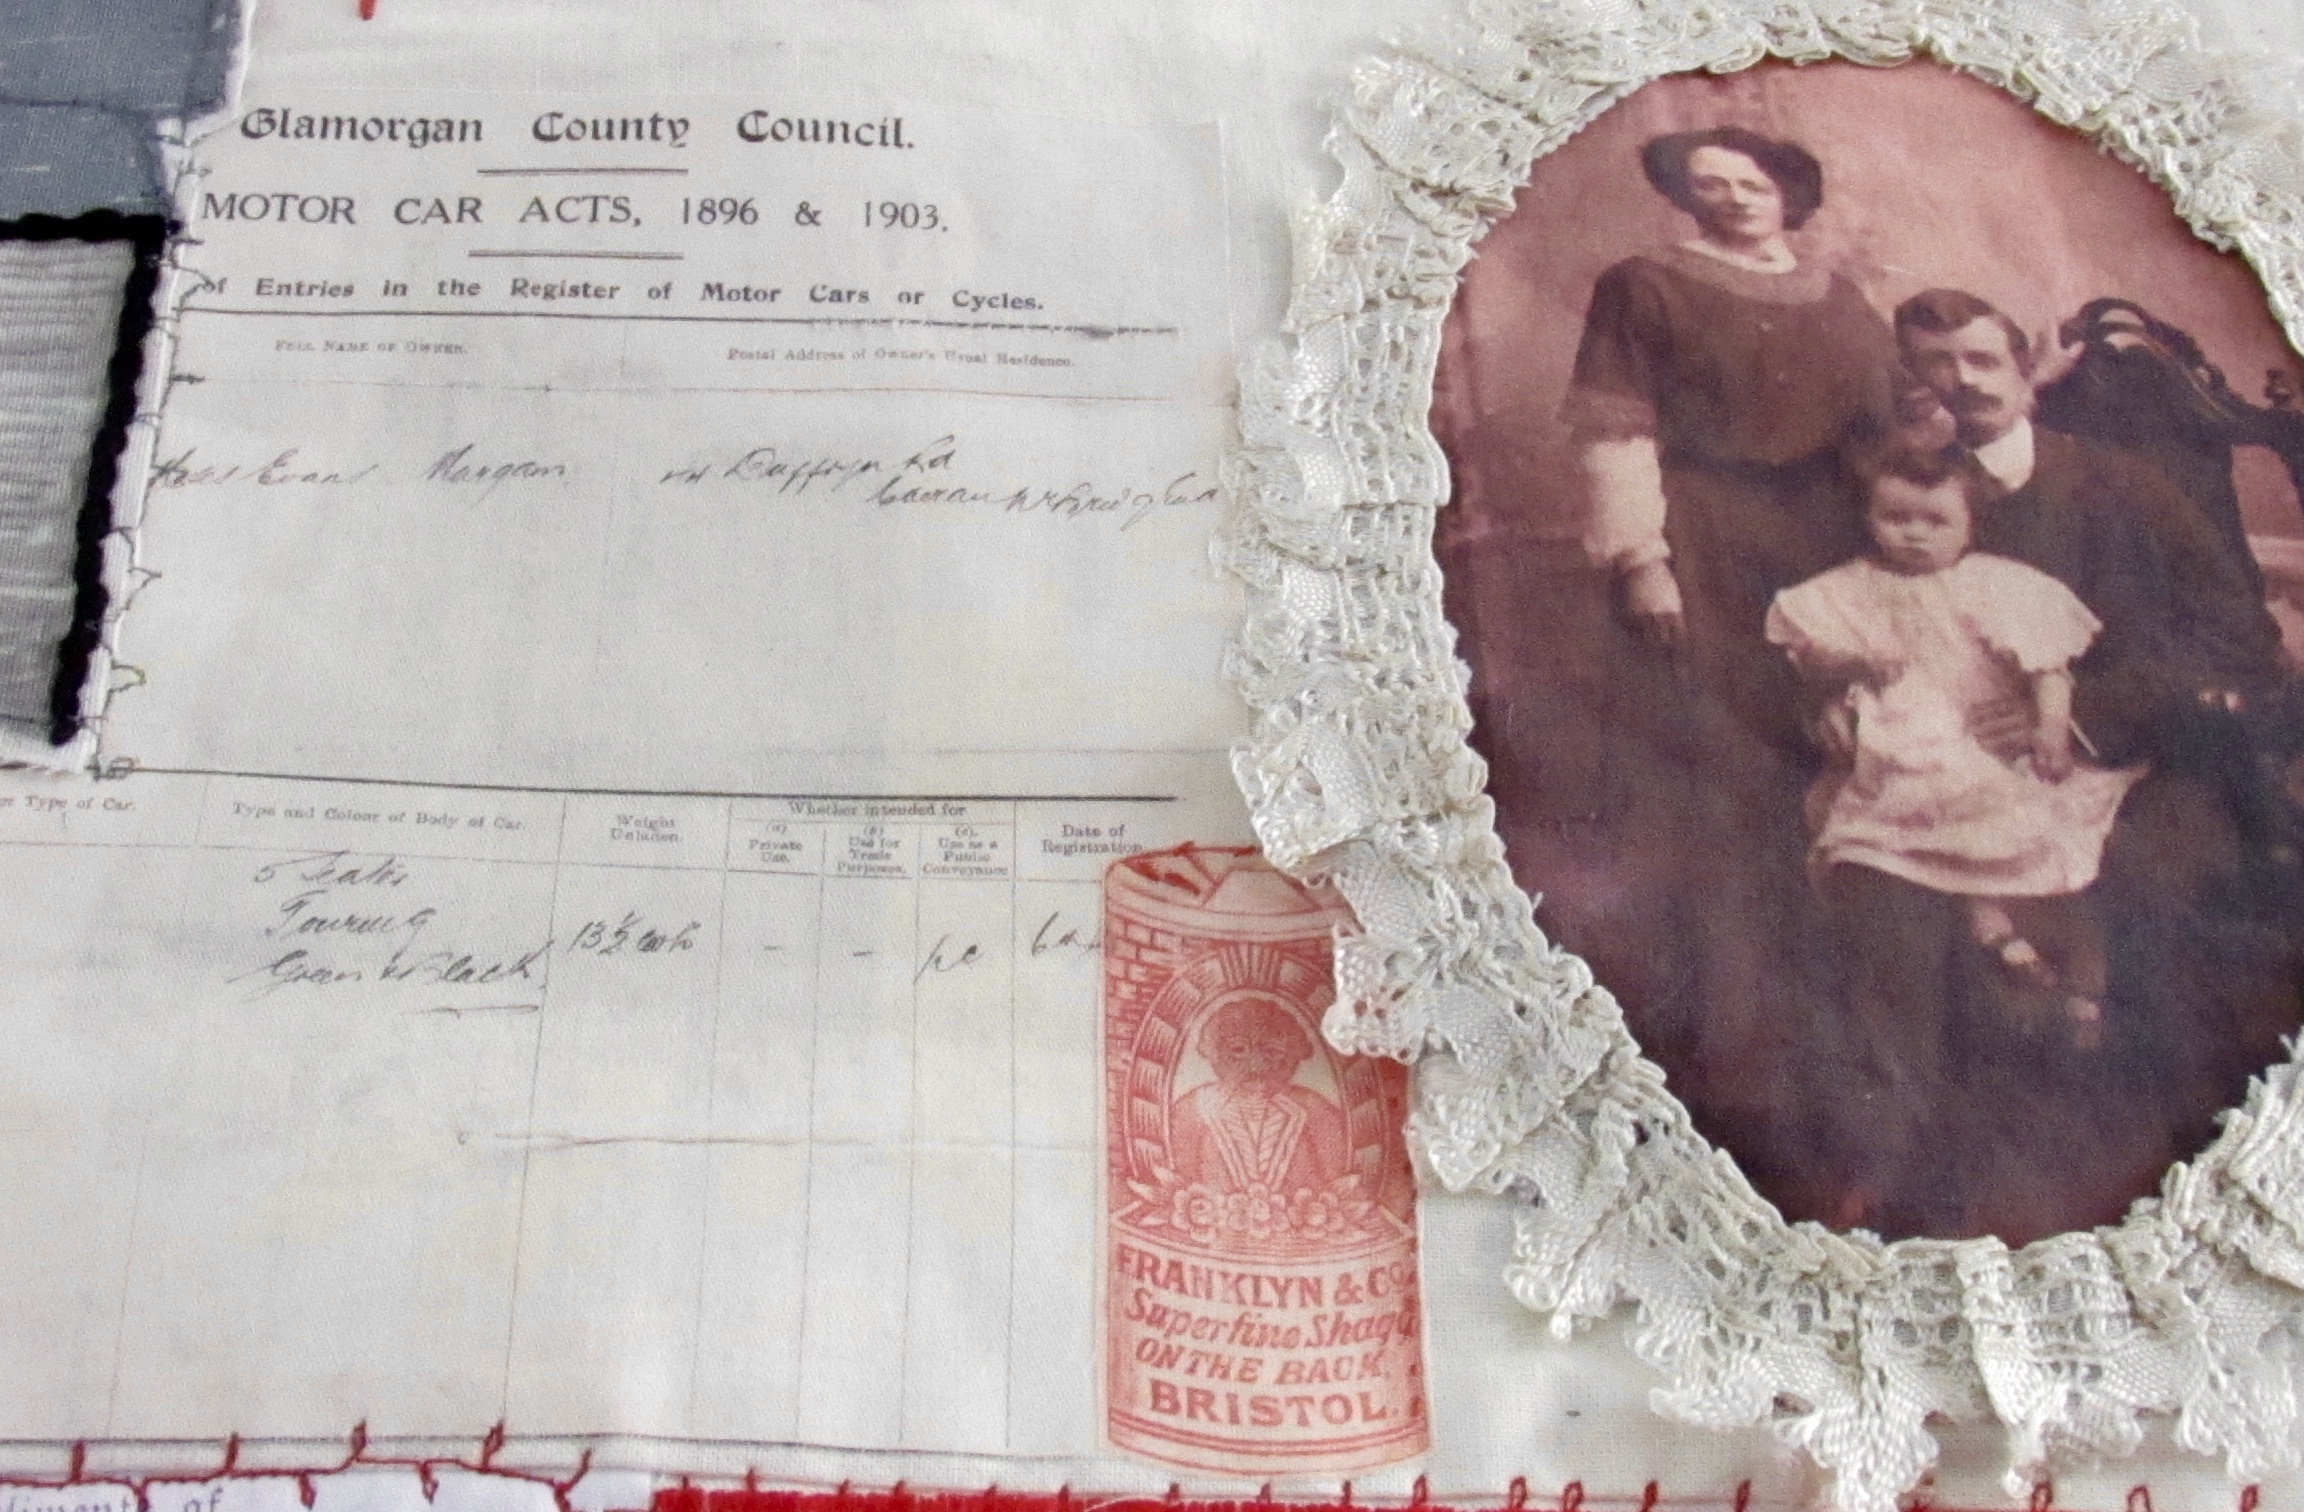 Glamorgan County Council.
MOTOR CAR ACTS, 1896 & 1903.
of Entries in the Register of Motor Cars or Cycles.
FULL NAME OF OWNER.
Postal Address of Owner's Usual Residence.
Evans Margam
Duffryn Rd
Caerau Nr Bridgend
Type of Car.
Type and Colour of Body of Car.
Weight Unladen.
Whether intended for
(a) Private Use.
(b) Use for Trade Purposes.
(c). Use as a Public Conveyance
Date of Registration
5 Seater
Touring
Green & Black.
13½ cwts
-
-
FRANKLYN & CO
Superfine Shagg
ON THE BACK,
BRISTOL.
of